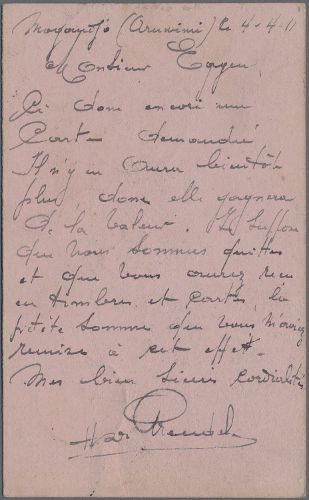 (Aruwimi) le 4-4-11
Monsieur Eggen,
Ci donc encore une
Carte demandée
Il n'y en aura bientôt
plus, donc elle gagnera
de la valeur. Je suppose
que nous sommes quittes
et que vous aurez reçu
en timbres et cartes, la
petite somme que vous m'aviez
remise à cet effet.
Mes bien sincères cordialités